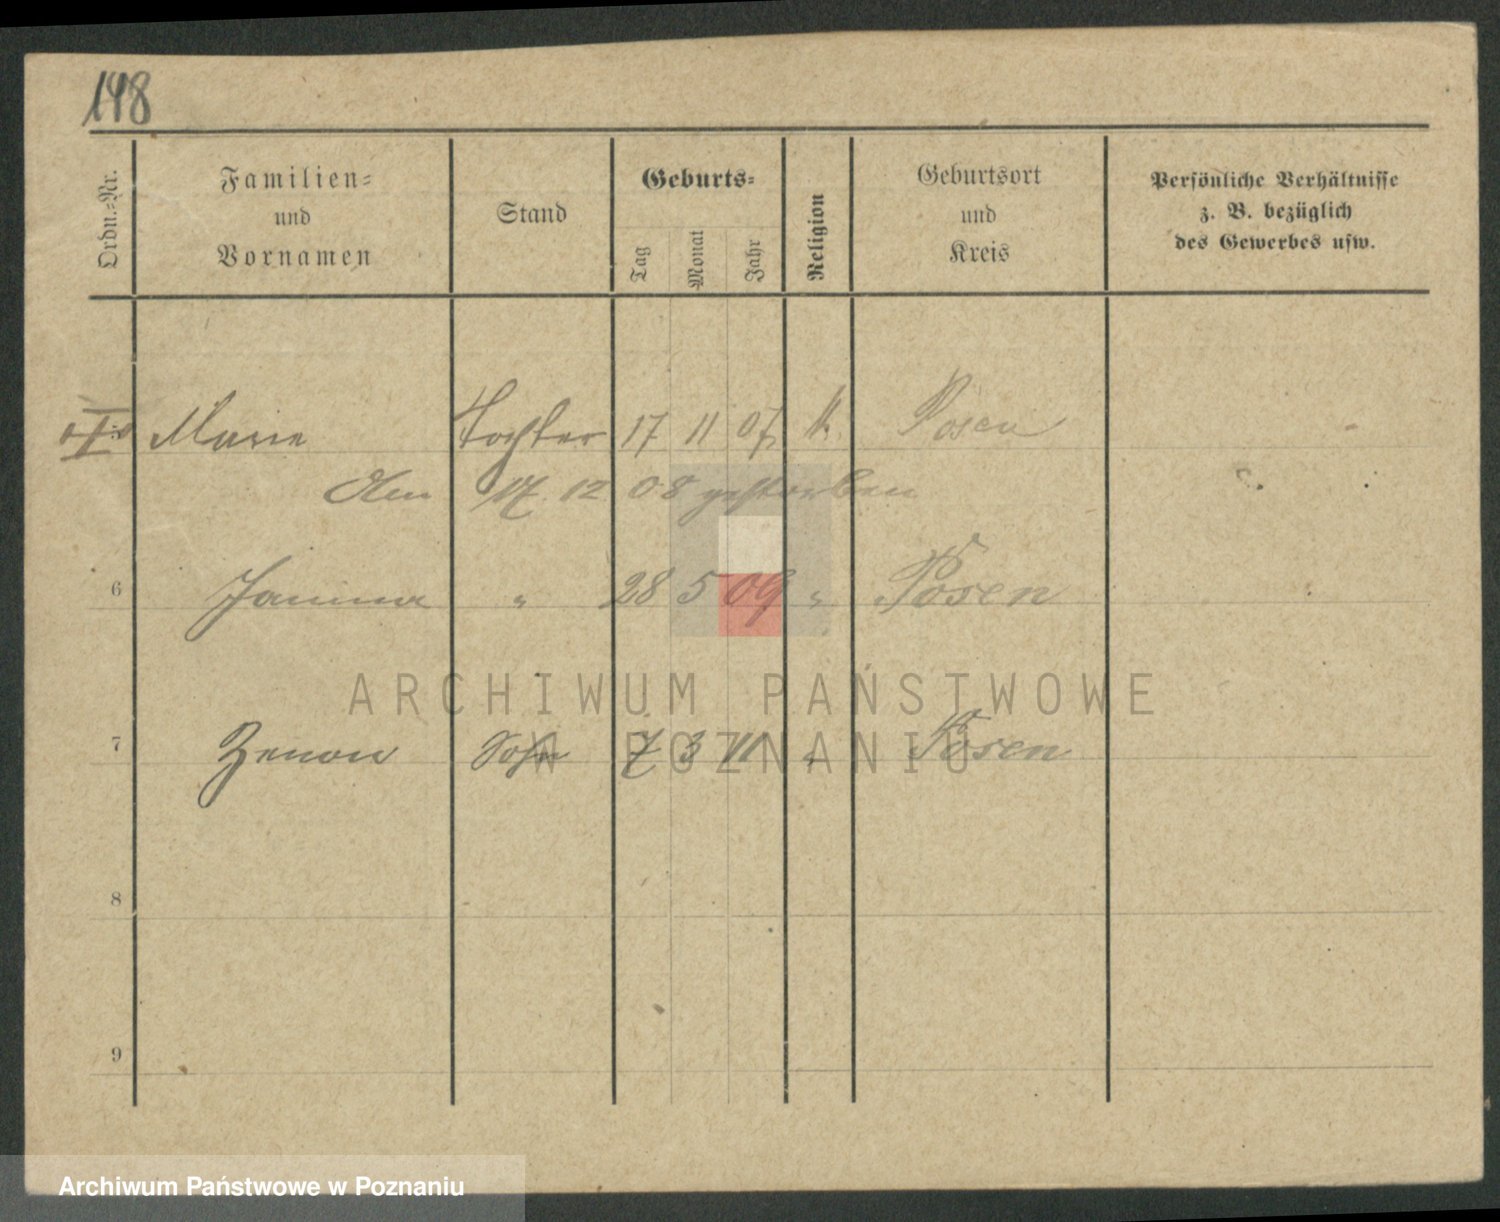 148
Ordn.=Nr. Familien= und Vornamen Stand Geburts= Tag Monat Jahr Religion Geburtsort und Kreis Persönliche Verhältnisse z. B. bezüglich des Gewerbes usw.
Marie Tochter 17 11 07 k. Posen
Am 17. 12 08 gestorben
6 Janina " 28 5 09 " Posen
ARCHIWUM PAŃSTWOWE
7 Zenon Sohn 7 3 11 " Posen
W POZNANIU
8
9
Archiwum Państwowe w Poznaniu